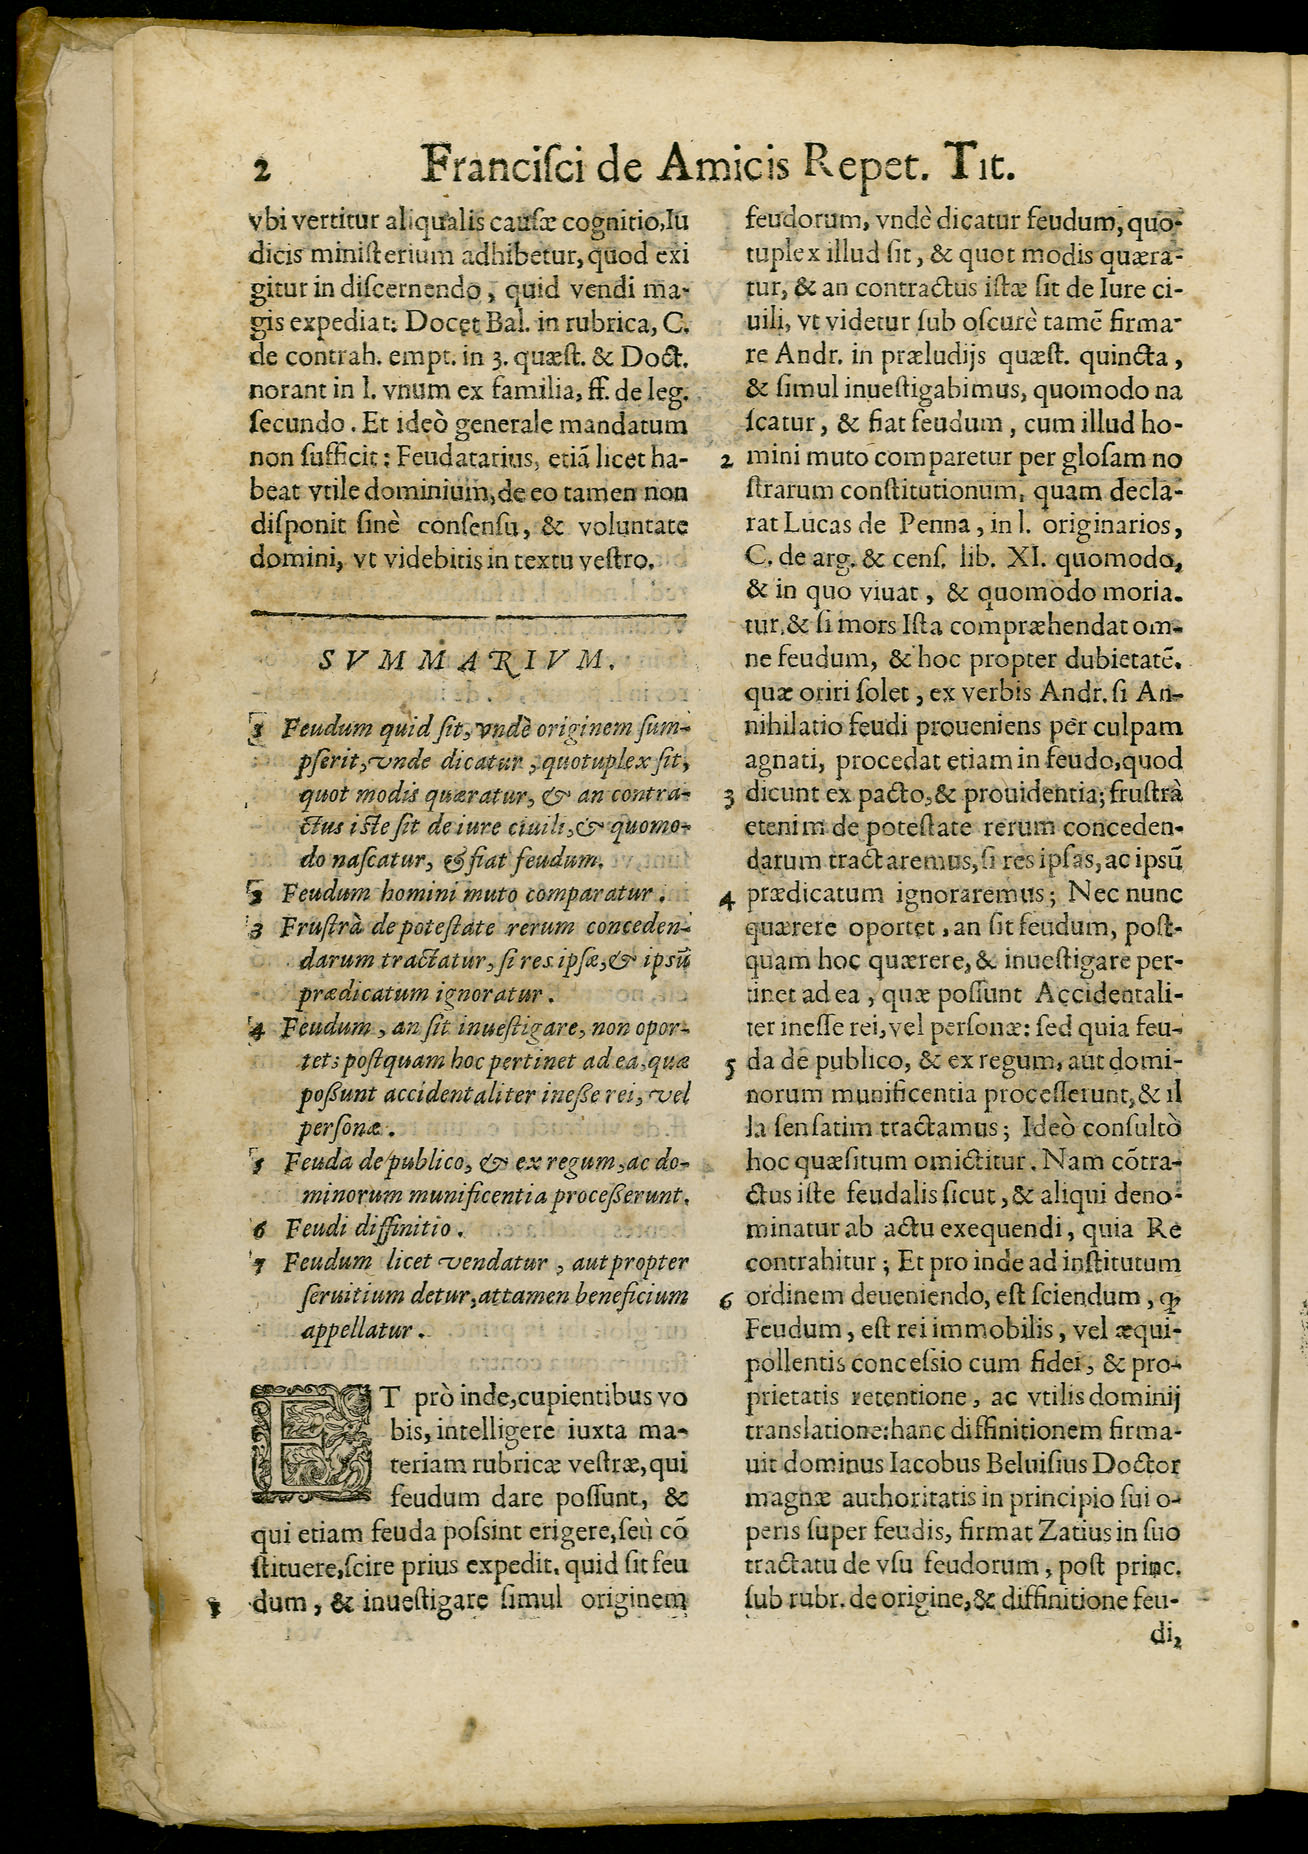 2 Franciſci de Amicis Repet. Tit.
vbi vertitur aliqualis cauſæ cognitio, Iu
dicis miniſterium adhibetur, quod exi
gitur in diſcernendo, quid vendi ma-
gis expediat: Docet Bal. in rubrica, C.
de contrah. empt. in 3. quæſt. & Doct.
norant in l. vnum ex familia, ff. de leg.
ſecundo. Et ideò generale mandatum
non ſufficit: Feudatarius, etiã licet ha-
beat vtile dominium, de eo tamen non
diſponit ſinè conſenſu, & voluntate
domini, vt videbitis in textu veſtro.
SVMMARIVM.
1 Feudum quid ſit, vndè originem ſum-
pſerit, vnde dicatur, quotuplex ſit,
quot modis quæratur, & an contra-
ctus iſte ſit de iure ciuili, & quomo-
do naſcatur, & fiat feudum.
2 Feudum homini muto comparatur.
3 Fruſtrà de poteſtate rerum conceden-
darum tractatur, ſi res ipſæ, & ipsũ
prædicatum ignoratur.
4 Feudum, an ſit inueſtigare, non opor-
tet; poſtquam hoc pertinet ad ea, quæ
poſſunt accidentaliter ineſſe rei, vel
perſonæ.
5 Feuda de publico, & ex regum, ac do-
minorum munificentia proceſſerunt.
6 Feudi diffinitio.
7 Feudum licet vendatur, aut propter
ſeruitium detur, attamen beneficium
appellatur.
ET prò inde, cupientibus vo
bis, intelligere iuxta ma-
teriam rubricæ veſtræ, qui
feudum dare poſſunt, &
qui etiam feuda poſsint erigere, ſeù cõ
ſtituere, ſcire prius expedit. quid ſit feu
1 dum, & inueſtigare ſimul originem
feudorum, vndè dicatur feudum, quo-
tuplex illud ſit, & quot modis quæra-
tur, & an contractus iſtæ ſit de Iure ci-
uili, vt videtur ſub oſcurè tamẽ firma-
re Andr. in præludijs quæſt. quincta,
& ſimul inueſtigabimus, quomodo na
ſcatur, & fiat feudum, cum illud ho-
2 mini muto comparetur per gloſam no
ſtrarum conſtitutionum, quam decla-
rat Lucas de Penna, in l. originarios,
C. de arg. & cenſ. lib. XI. quomodo,
& in quo viuat, & quomodo moria-
tur, & ſi mors Iſta compræhendat om-
ne feudum, & hoc propter dubietatẽ.
quæ oriri ſolet, ex verbis Andr. ſi An-
nihilatio feudi proueniens per culpam
agnati, procedat etiam in feudo, quod
3 dicunt ex pacto, & prouidentia; fruſtrà
etenim de poteſtate rerum conceden-
darum tractaremus, ſi res ipſas, ac ipsũ
4 prædicatum ignoraremus; Nec nunc
quærere oportet, an ſit feudum, poſt-
quam hoc quærere, & inueſtigare per-
tinet ad ea, quæ poſſunt Accidentali-
ter ineſſe rei, vel perſonæ: ſed quia feu-
5 da de publico, & ex regum, aut domi-
norum munificentia proceſſerunt, & il
la ſenſatim tractamus; Ideò conſultò
hoc quæſitum omictitur. Nam cõtra-
ctus iſte feudalis ſicut, & aliqui deno-
minatur ab actu exequendi, quia Re
contrahitur; Et pro inde ad inſtitutum
6 ordinem deueniendo, eſt ſciendum, ꝙ
Feudum, eſt rei immobilis, vel æqui-
pollentis conceſsio cum fidei, & pro-
prietatis retentione, ac vtilis dominij
translatione: hanc diffinitionem firma-
uit dominus Iacobus Beluiſius Doctor
magnæ authoritatis in principio ſui o-
peris ſuper feudis, firmat Zatius in ſuo
tractatu de vſu feudorum, poſt princ.
ſub rubr. de origine, & diffinitione feu-
di,